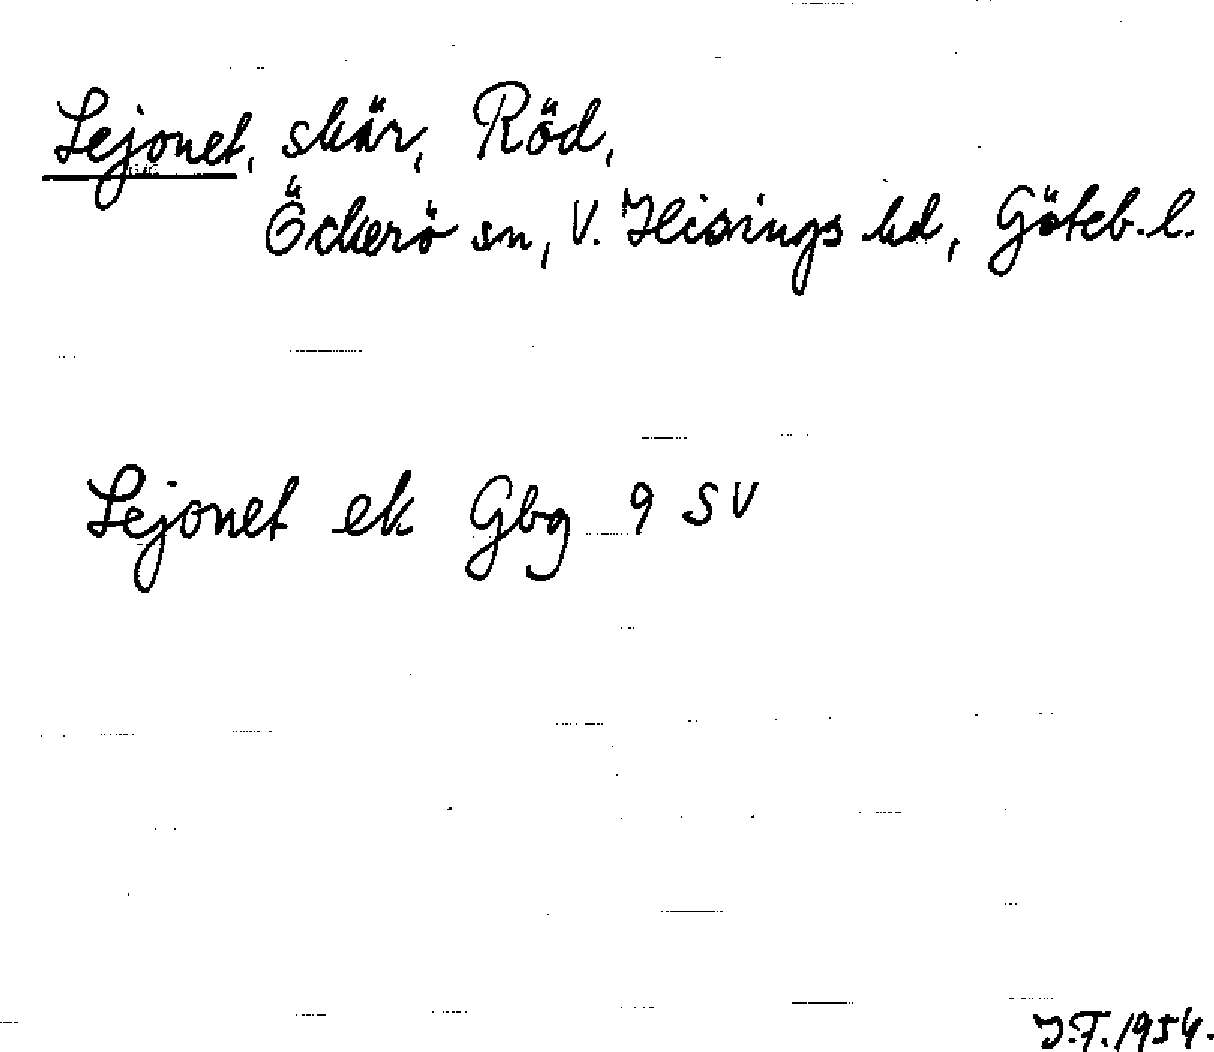 Lejonet, skär, Röd,
Öckerö sn, V. Hisings hd, Göteb. l.
Lejonet ek Gbg 9 SV
J.F. 1954.